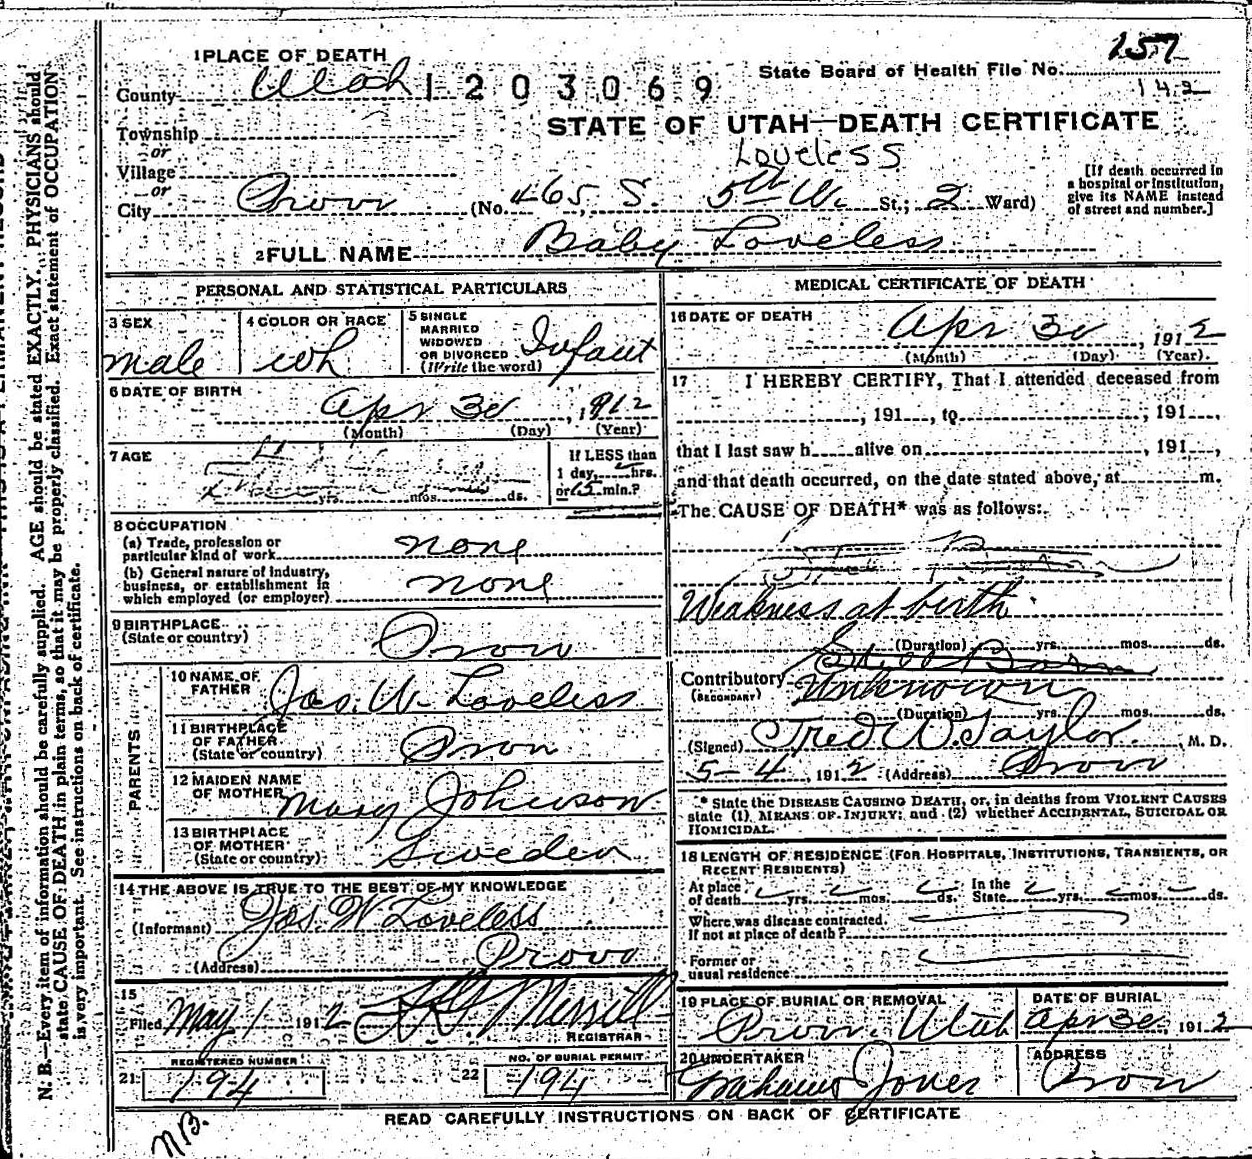 1 PLACE OF DEATH
County Utah 1203069
State Board of Health File No. 257
142
STATE OF UTAH—DEATH CERTIFICATE
Township
or
Village
Loveless
or
City Provo (No. 465 S. 5th W. St.; 2 Ward)
[If death occurred in
a hospital or institution,
give its NAME instead
of street and number.]
2 FULL NAME Baby Loveless
PERSONAL AND STATISTICAL PARTICULARS
3 SEX
male
4 COLOR OR RACE
wh
5 SINGLE
MARRIED
WIDOWED
OR DIVORCED
(Write the word)
Infant
6 DATE OF BIRTH
Apr 30, 1912
(Month) (Day) (Year)
7 AGE
yrs. mos. ds.
If LESS than
1 day, hrs.
or 65 min.?
8 OCCUPATION
(a) Trade, profession or
particular kind of work none
(b) General nature of industry,
business, or establishment in
which employed (or employer) none
9 BIRTHPLACE
(State or country) Provo
PARENTS
10 NAME OF
FATHER Jas. W. Loveless
11 BIRTHPLACE
OF FATHER
(State or country) Provo
12 MAIDEN NAME
OF MOTHER Mary Johnson
13 BIRTHPLACE
OF MOTHER
(State or country) Sweden
14 THE ABOVE IS TRUE TO THE BEST OF MY KNOWLEDGE
(Informant) Jas. W Loveless
(Address) Provo
15
Filed May 1 1912 Merrill
REGISTRAR
REGISTERED NUMBER
21 194
NO. OF BURIAL PERMIT
22 194
MEDICAL CERTIFICATE OF DEATH
16 DATE OF DEATH
Apr 30, 1912
(Month) (Day) (Year)
17 I HEREBY CERTIFY, That I attended deceased from
, 191 , to , 191 ,
that I last saw h alive on , 191 ,
and that death occurred, on the date stated above, at m.
The CAUSE OF DEATH* was as follows:
Weakness at birth
(Duration) yrs. mos. ds.
Still Born
Contributory
(SECONDARY) Unknown
(Duration) yrs. mos. ds.
(Signed) Fred W. Taylor, M. D.
5-4, 1912 (Address) Provo
* State the DISEASE CAUSING DEATH, or, in deaths from VIOLENT CAUSES
state (1) MEANS OF INJURY; and (2) whether ACCIDENTAL, SUICIDAL OR
HOMICIDAL.
18 LENGTH OF RESIDENCE (FOR HOSPITALS, INSTITUTIONS, TRANSIENTS, OR
RECENT RESIDENTS)
At place
of death yrs. mos. ds.
In the
State yrs. mos. ds.
Where was disease contracted,
If not at place of death?
Former or
usual residence
19 PLACE OF BURIAL OR REMOVAL
Provo, Utah
DATE OF BURIAL
Apr 30, 1912
20 UNDERTAKER
Jones
ADDRESS
Provo
READ CAREFULLY INSTRUCTIONS ON BACK OF CERTIFICATE
N. B.—Every item of information should be carefully supplied. AGE should be stated EXACTLY. PHYSICIANS should
state CAUSE OF DEATH in plain terms, so that it may be properly classified. Exact statement of OCCUPATION
is very important. See instructions on back of certificate.
NB.